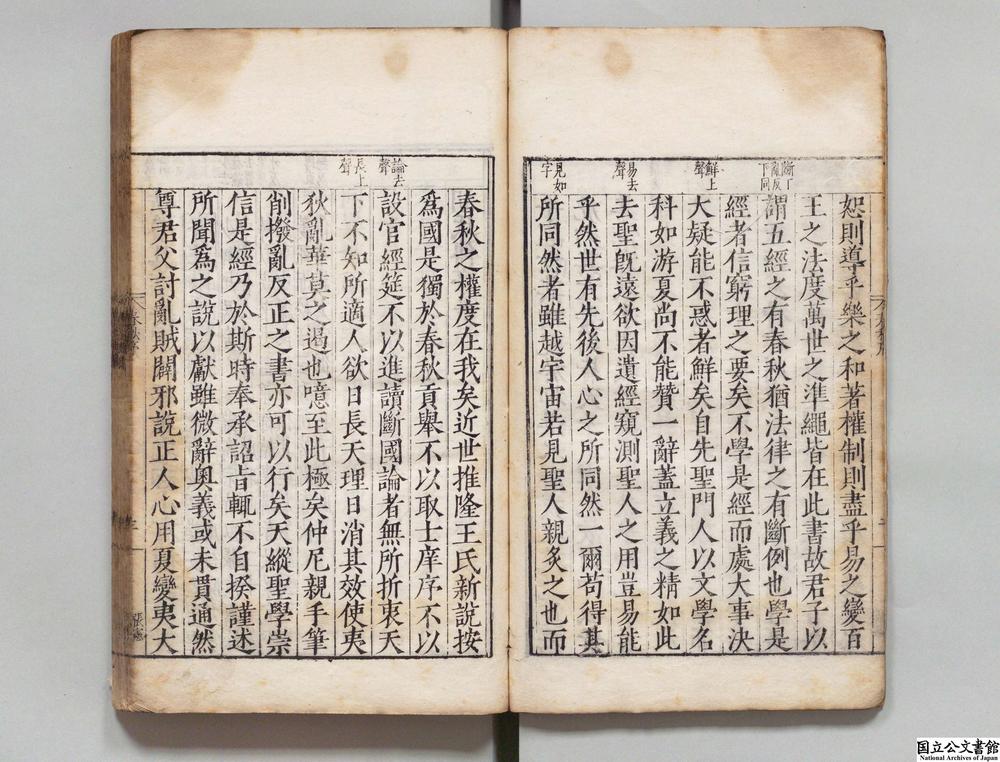 斷丁
亂反
下同
鮮上
聲
易去
聲
見如
字
恕則導乎樂之和著權制則盡乎易之變百
王之法度萬世之準繩皆在此書故君子以
謂五經之有春秋猶法律之有斷例也學是
經者信窮理之要矣不學是經而處大事決
大疑能不惑者鮮矣自先聖門人以文學名
科如游夏尚不能贊一辭蓋立義之精如此
去聖旣遠欲因遺經窺測聖人之用豈易能
乎然世有先後人心之所同然一爾苟得其
所同然者雖越宇宙若見聖人親炙之也而
論去
聲
長上
聲
春秋之權度在我矣近世推隆王氏新說按
爲國是獨於春秋貢舉不以取士庠序不以
設官經筵不以進讀斷國論者無所折衷天
下不知所適人欲日長天理日消其效使夷
狄亂華莫之遏也噫至此極矣仲尼親手筆
削撥亂反正之書亦可以行矣天縱聖學崇
信是經乃於斯時奉承詔旨輒不自揆謹述
所聞爲之說以獻雖微辭奧義或未貫通然
尊君父討亂賊闢邪說正人心用夏變夷大
国立公文書館
National Archives of Japan